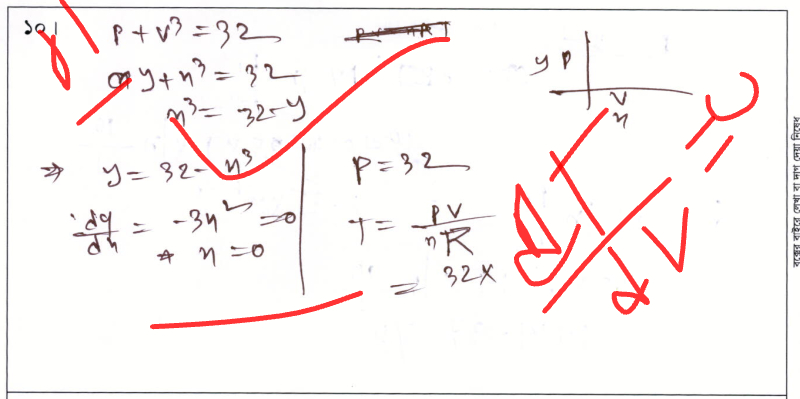 ১০।
P + V³ = 32
y + x³ = 32
x³ = 32 - y
⇒ y = 32 - x³
dy/dx = -3x² = 0
x = 0
P = 32
T = PV/nR
= 32×
y P
V
x
বক্সের বাইরে লেখা বা দাগ দেয়া নিষেধ